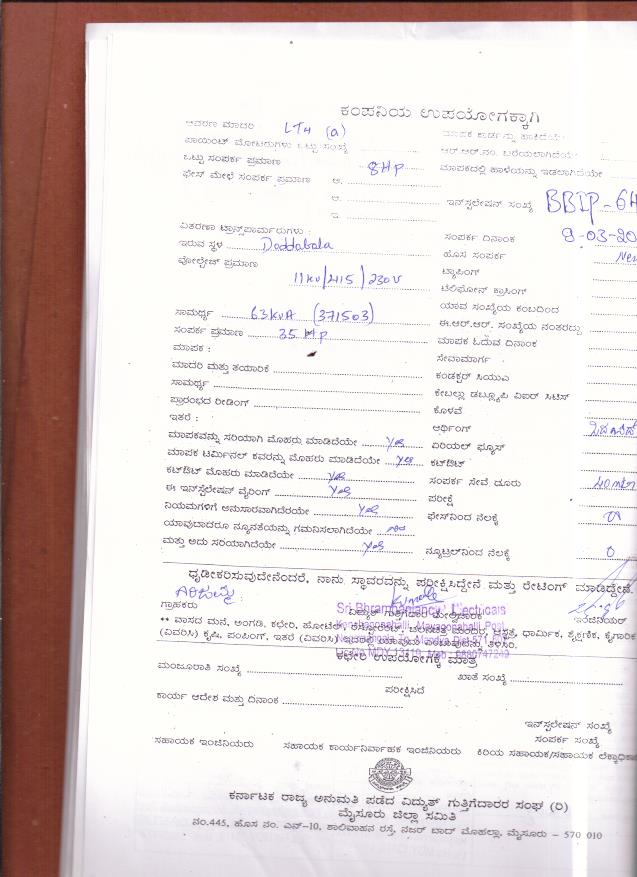 ಕಂಪನಿಯ ಉಪಯೋಗಕ್ಕಾಗಿ
ಆವರಣ ಮಾದರಿ LT4 (a)
ಪಾಯಿಂಟ್ ಮೋಟರುಗಳು ಒಟ್ಟು ಸಂಖ್ಯೆ
ಆರ್.ಆರ್.ನಂ. ಬರೆಯಲಾಗಿದೆಯೇ
ಒಟ್ಟು ಸಂಪರ್ಕ ಪ್ರಮಾಣ 8HP
ಮಾಪಕದಲ್ಲಿ ಹಾಳೆಯನ್ನು ಇಡಲಾಗಿದೆಯೇ
ಫೇಸ್ ಮೇಳೆ ಸಂಪರ್ಕ ಪ್ರಮಾಣ
ಇನ್‌ಸ್ಪಲೇಷನ್ ಸಂಖ್ಯೆ BBIP-6H
ವಿತರಣಾ ಟ್ರಾನ್ಸ್‌ಫಾರ್ಮರುಗಳು :
ಸಂಪರ್ಕ ದಿನಾಂಕ 9-03-20
ಇರುವ ಸ್ಥಳ Doddabala
ಹೊಸ ಸಂಪರ್ಕ New
ವೋಲ್ಟೇಜ್ ಪ್ರಮಾಣ 11kv/415/230V
ಟ್ಯಾಪಿಂಗ್
ಟೆಲಿಫೋನ್ ಕ್ರಾಸಿಂಗ್
ಯಾವ ಸಂಖ್ಯೆಯ ಕಂಬದಿಂದ
ಸಾಮರ್ಥ್ಯ 63KVA (371503)
ಈ.ಆರ್.ಆರ್. ಸಂಖ್ಯೆಯ ನಂತರದ್ದು
ಸಂಪರ್ಕ ಪ್ರಮಾಣ 35 HP
ಮಾಪಕ ಓದುವ ದಿನಾಂಕ
ಮಾಪಕ :
ಸೇವಾಮಾರ್ಗ
ಮಾದರಿ ಮತ್ತು ತಯಾರಿಕೆ
ಕಂಡಕ್ಟರ್ ಸಿಯುಎ
ಸಾಮರ್ಥ್ಯ
ಕೇಬಲ್ಲು ಡಬ್ಲ್ಯೂಪಿ ವಿಐರ್ ಸಿಟಿಸ್
ಪ್ರಾರಂಭದ ರೀಡಿಂಗ್
ಕೊಳವೆ
ಇತರೆ :
ಆರ್ಥಿಂಗ್
ಮಾಪಕವನ್ನು ಸರಿಯಾಗಿ ಮೊಹರು ಮಾಡಿದೆಯೇ Yes
ಏರಿಯಲ್ ಫ್ಯೂಸ್
ಮಾಪಕ ಟರ್ಮಿನಲ್ ಕವರನ್ನು ಮೊಹರು ಮಾಡಿದೆಯೇ Yes
ಕಟ್‌ಔಟ್
ಕಟ್‌ಔಟ್ ಮೊಹರು ಮಾಡಿದೆಯೇ Yes
ಸಂಪರ್ಕ ಸೇವೆ ದೂರು
ಈ ಇನ್‌ಸ್ಪಲೇಷನ್ ವೈರಿಂಗ್ Yes
ಪರೀಕ್ಷೆ
ನಿಯಮಗಳಿಗೆ ಅನುಸಾರವಾಗಿದೆರೆಯೇ Yes
ಫೇಸ್‌ನಿಂದ ನೆಲಕ್ಕೆ
ಯಾವುದಾದರೂ ನ್ಯೂನತೆಯನ್ನು ಗಮನಿಸಲಾಗಿದೆಯೇ
ಮತ್ತು ಅದು ಸರಿಯಾಗಿದೆಯೇ Yes
ನ್ಯೂಟ್ರಲ್‌ನಿಂದ ನೆಲಕ್ಕೆ 0
ಧೃಡೀಕರಿಸುವುದೇನೆಂದರೆ, ನಾನು ಸ್ಥಾವರವನ್ನು ಪರೀಕ್ಷಿಸಿದ್ದೇನೆ ಮತ್ತು ರೇಟಿಂಗ್ ಮಾಡಿದ್ದೇನೆ.
ಗ್ರಾಹಕರು ವಿದ್ಯುತ್ ಗುತ್ತಿಗೆದಾರ ಇಂಜಿನಿಯರ್
** ವಾಸದ ಮನೆ, ಅಂಗಡಿ, ಕಛೇರಿ, ಹೋಟೆಲ್, ಧಾರ್ಮಿಕ, ಶೈಕ್ಷಣಿಕ, ಕೈಗಾರಿಕ
(ವಿವರಿಸಿ) ಕೃಷಿ, ಪಂಪಿಂಗ್, ಇತರೆ (ವಿವರಿಸಿ) ತಿಳಿಸಿಂ.
ಕಛೇರಿ ಉಪಯೋಗಕ್ಕೆ ಮಾತ್ರ
ಮಂಜೂರಾತಿ ಸಂಖ್ಯೆ
ಖಾತೆ ಸಂಖ್ಯೆ
ಪರೀಕ್ಷಿಸಿದೆ
ಕಾರ್ಯ ಆದೇಶ ಮತ್ತು ದಿನಾಂಕ
ಇನ್‌ಸ್ಪಲೇಷನ್ ಸಂಖ್ಯೆ
ಸಂಪರ್ಕ ಸಂಖ್ಯೆ
ಸಹಾಯಕ ಇಂಜಿನಿಯರು ಸಹಾಯಕ ಕಾರ್ಯನಿರ್ವಾಹಕ ಇಂಜಿನಿಯರು ಕಿರಿಯ ಸಹಾಯಕ/ಸಹಾಯಕ ಲೆಕ್ಕಾಧಿಕಾ
ಕರ್ನಾಟಕ ರಾಜ್ಯ ಅನುಮತಿ ಪಡೆದ ವಿದ್ಯುತ್ ಗುತ್ತಿಗೆದಾರರ ಸಂಘ (ರಿ)
ಮೈಸೂರು ಜಿಲ್ಲಾ ಸಮಿತಿ
ನಂ.445, ಹೊಸ ನಂ. ಎನ್-10, ಶಾಲಿವಾಹನ ರಸ್ತೆ, ನಜರ್ ಬಾದ್ ಮೊಹಲ್ಲಾ, ಮೈಸೂರು - 570 010